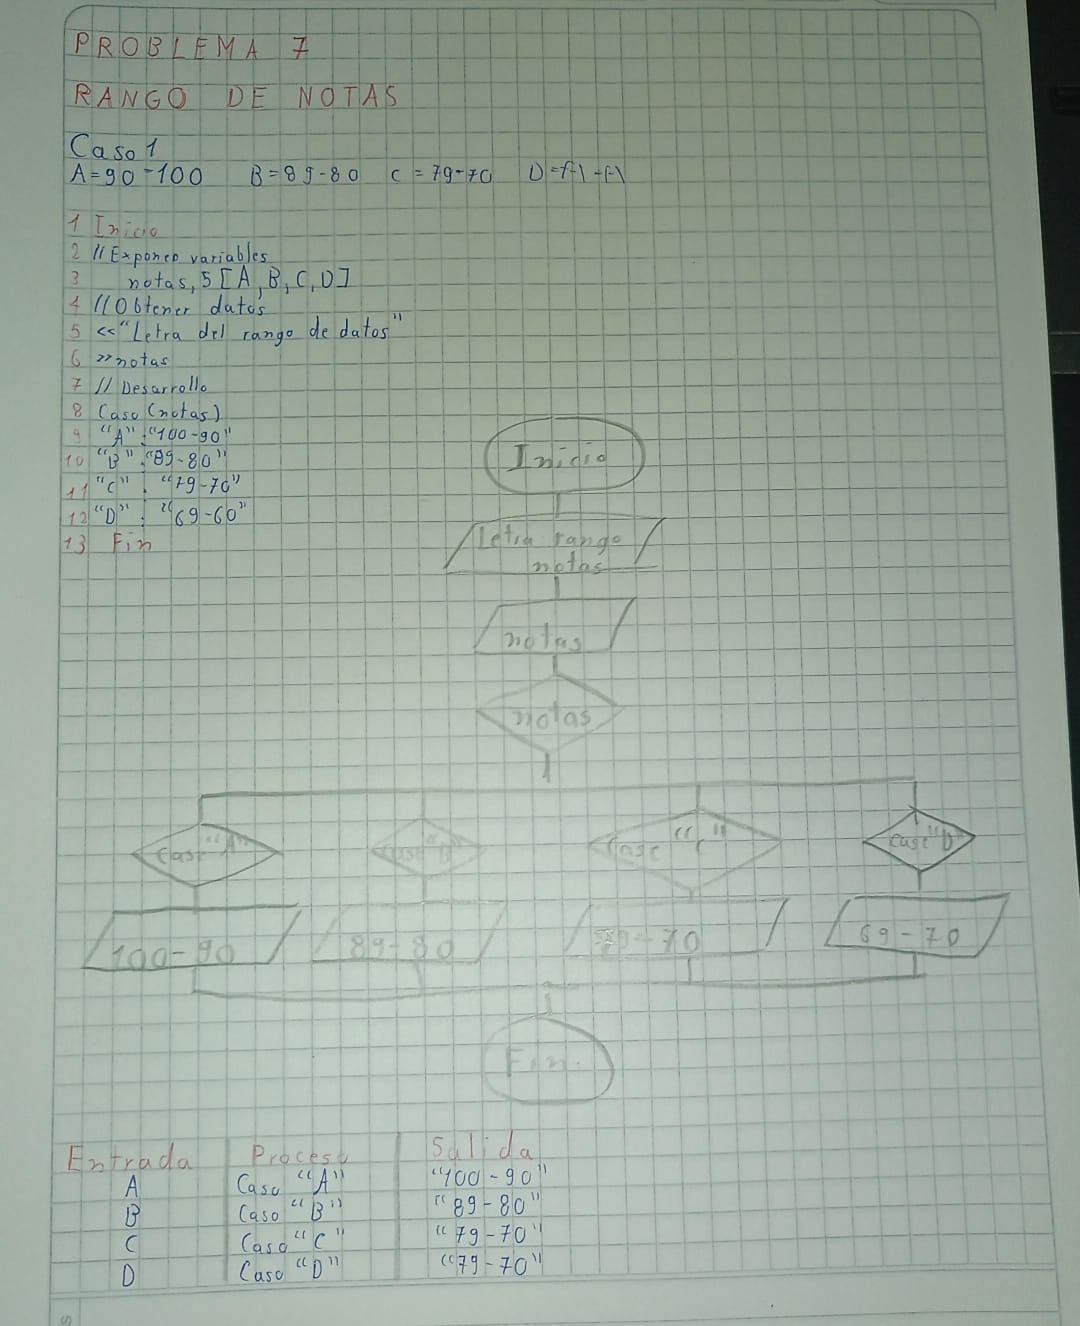 PROBLEMA 7
RANGO DE NOTAS
Caso 1
A=90-100 B=89-80 C=79-70 D=
1 Inicio
2 //Exponer variables
3 notas, 5 [A, B, C, D]
4 //Obtener datos
5 <<"Letra del rango de datos"
6 >>notas
7 // Desarrollo
8 Caso (notas)
9 "A":"100-90"
10 "B":"89-80"
11 "C": "79-70"
12 "D": "69-60"
13 Fin
Inicio
Letra rango
notas
notas
notas
Case "A" Case "B" Case "C" Case "D"
100-90 89-80 79-70 69-70
Fin.
Entrada Proceso Salida
A Caso "A" "100-90"
B Caso "B" "89-80"
C Caso "C" "79-70"
D Caso "D" "79-70"